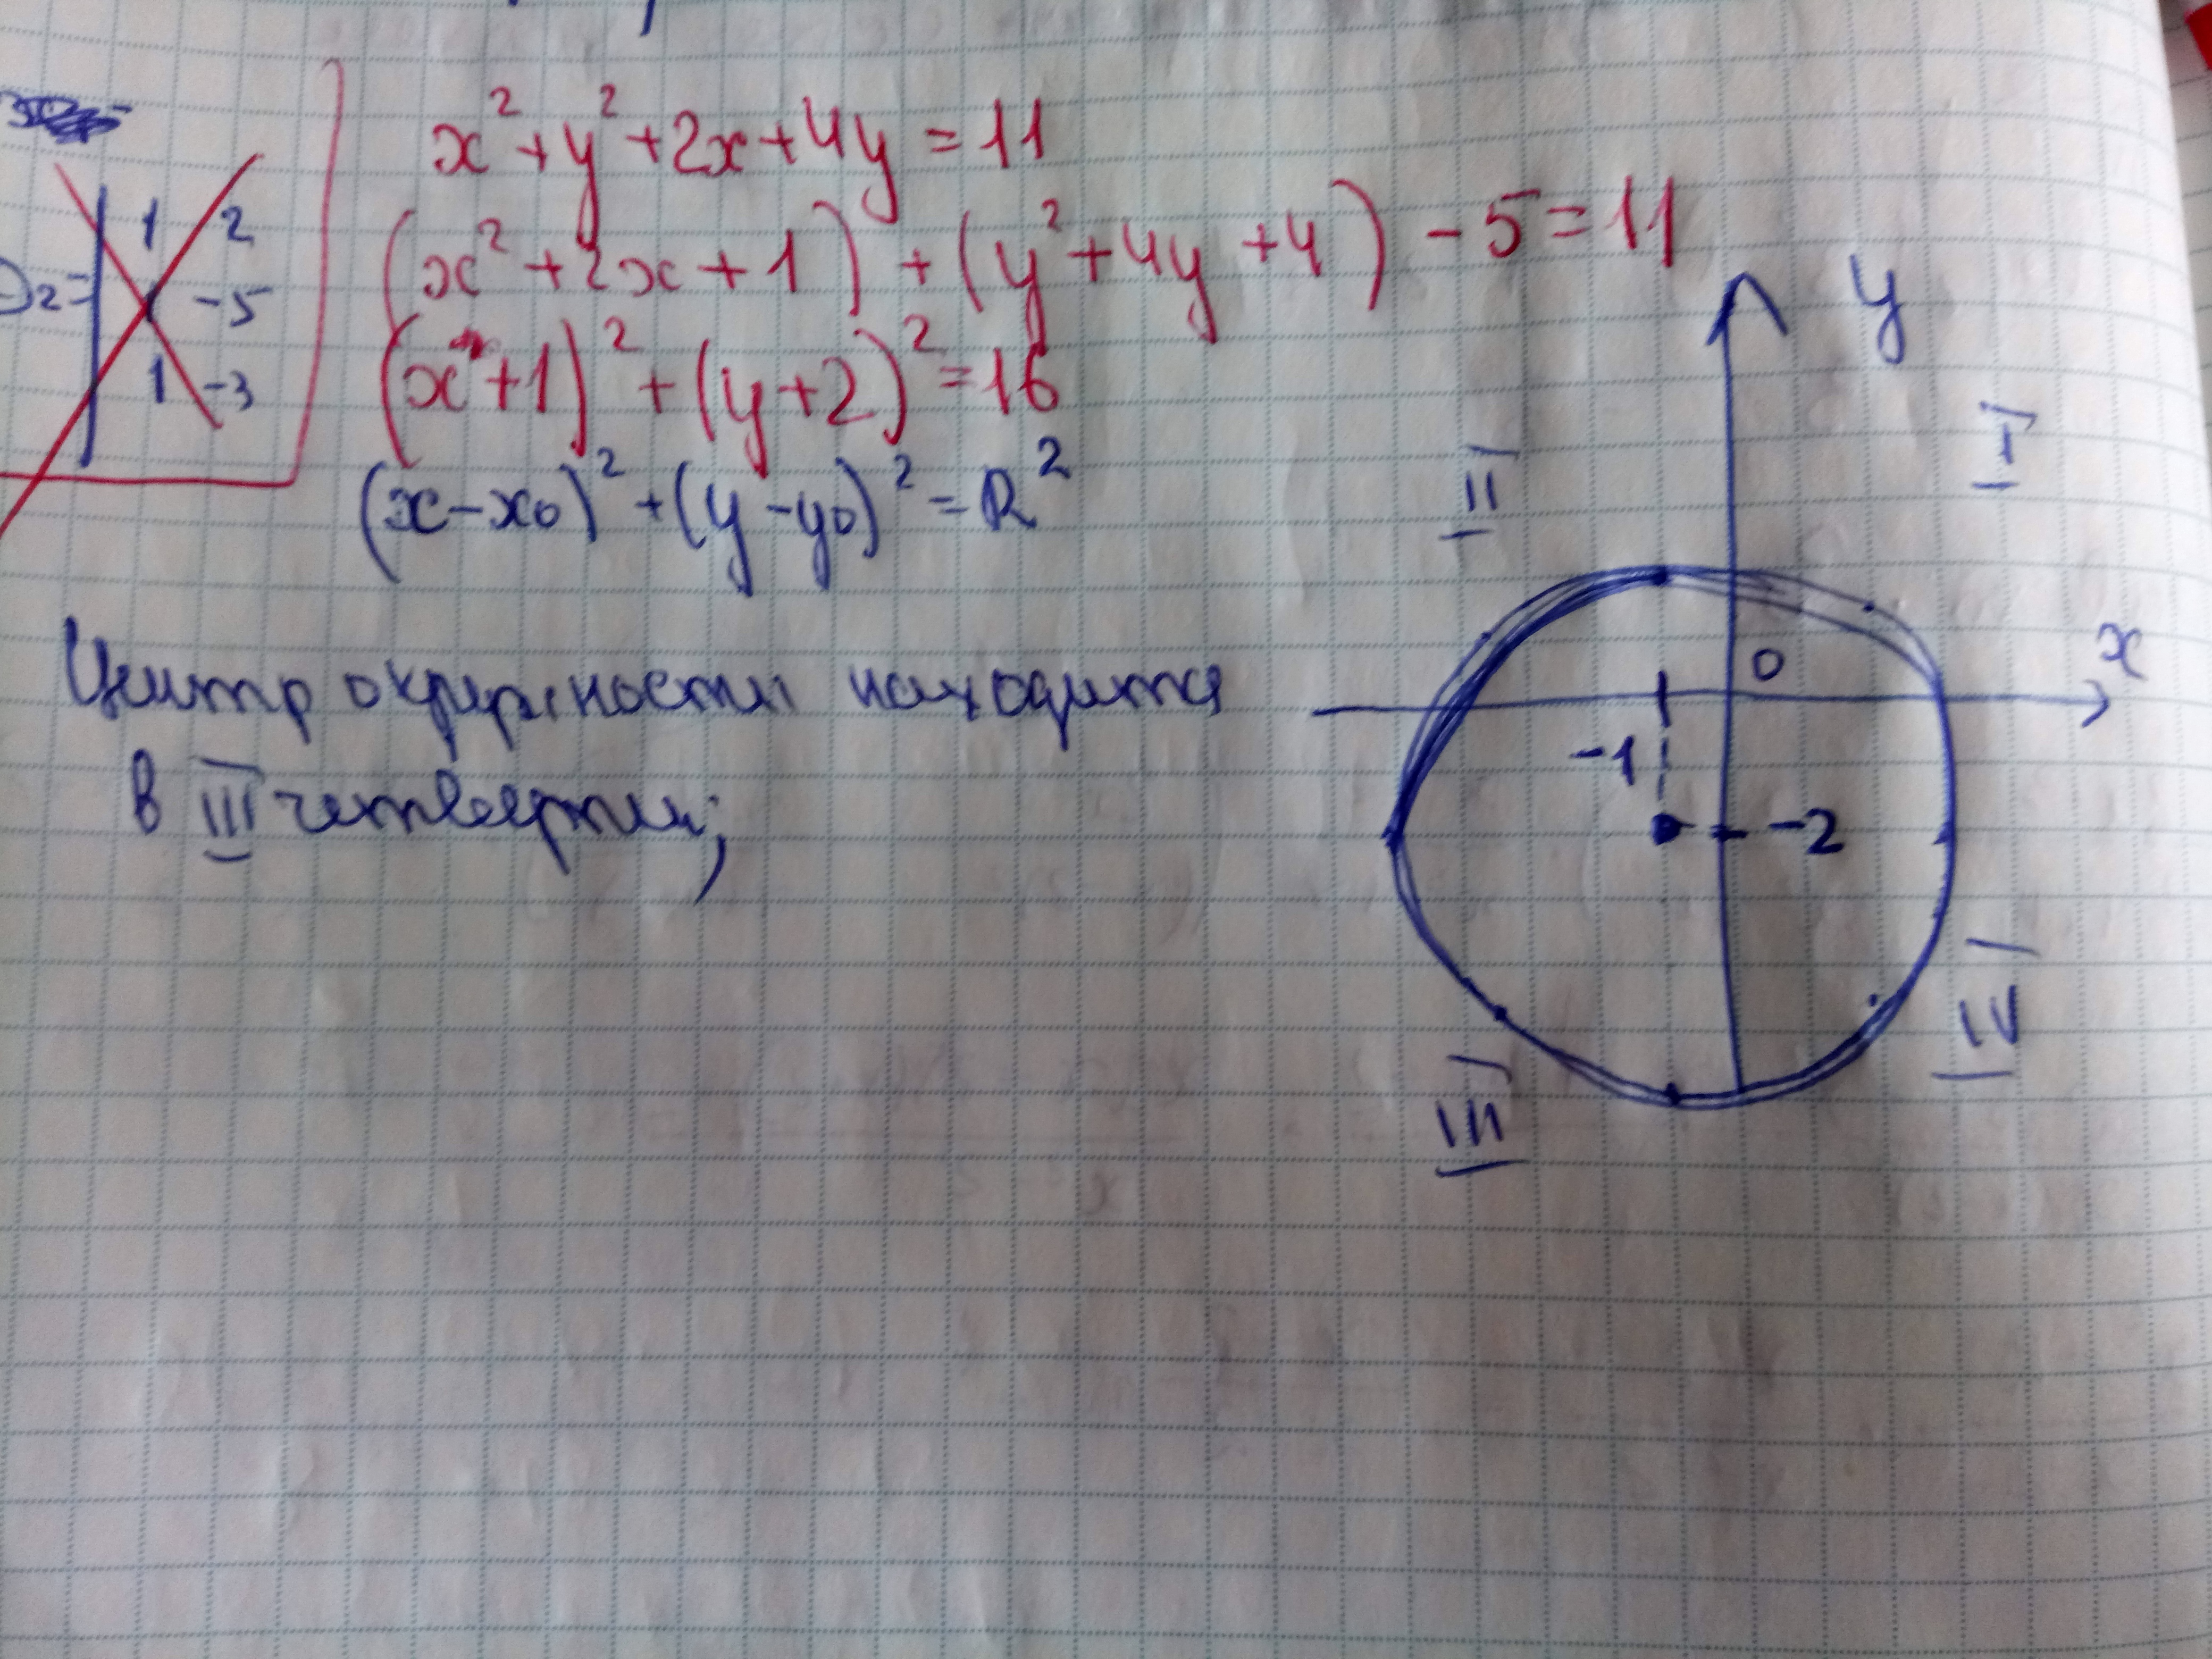 x² + y² + 2x + 4y = 11
(x² + 2x + 1) + (y² + 4y + 4) - 5 = 11
(x + 1)² + (y + 2)² = 16
(x - x₀)² + (y - y₀)² = R²
1 2
-5
1 -3
Центр окружности находится
в III четверти;
y
I
II
0
x
-1
-2
IV
III